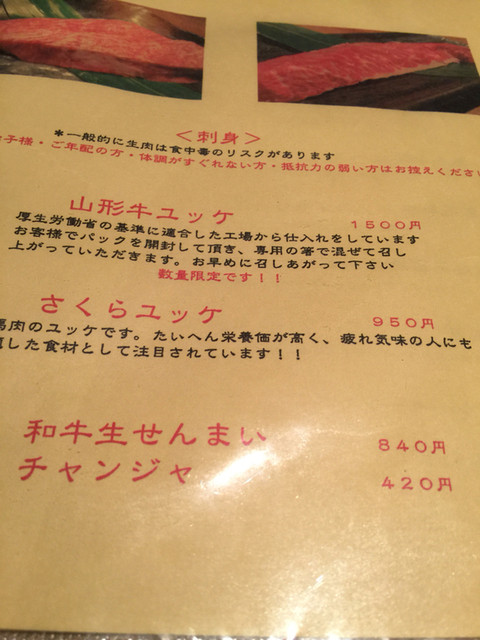 ＜刺身＞
＊一般的に生肉は食中毒のリスクがあります
子様・ご年配の方・体調がすぐれない方・抵抗力の弱い方はお控えくださ
山形牛ユッケ 1500円
厚生労働省の基準に適合した工場から仕入れをしています
お客様でパックを開封して頂き、専用の箸で混ぜて召し
上がっていただきます。お早めに召しあがって下さい
数量限定です！！
さくらユッケ 950円
馬肉のユッケです。たいへん栄養価が高く、疲れ気味の人にも
した食材として注目されています！！
和牛生せんまい 840円
チャンジャ 420円